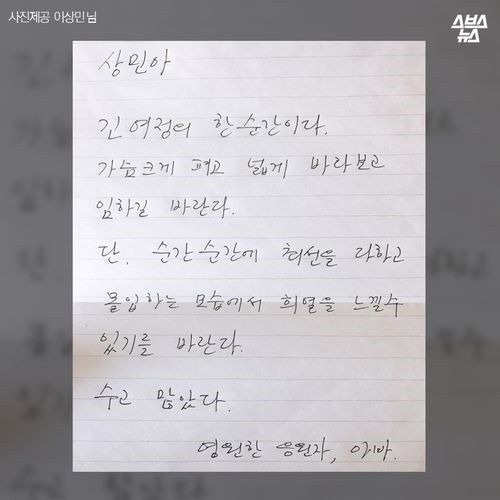 사진제공 이상민 님
스브스
뉴스
상민아
긴 여정의 한 순간이다.
가슴 크게 펴고 넓게 바라보고
임하길 바란다.
단. 순간 순간에 최선을 다하고
몰입하는 모습에서 희열을 느낄수
있기를 바란다.
수고 많았다.
영원한 응원자, 아빠.